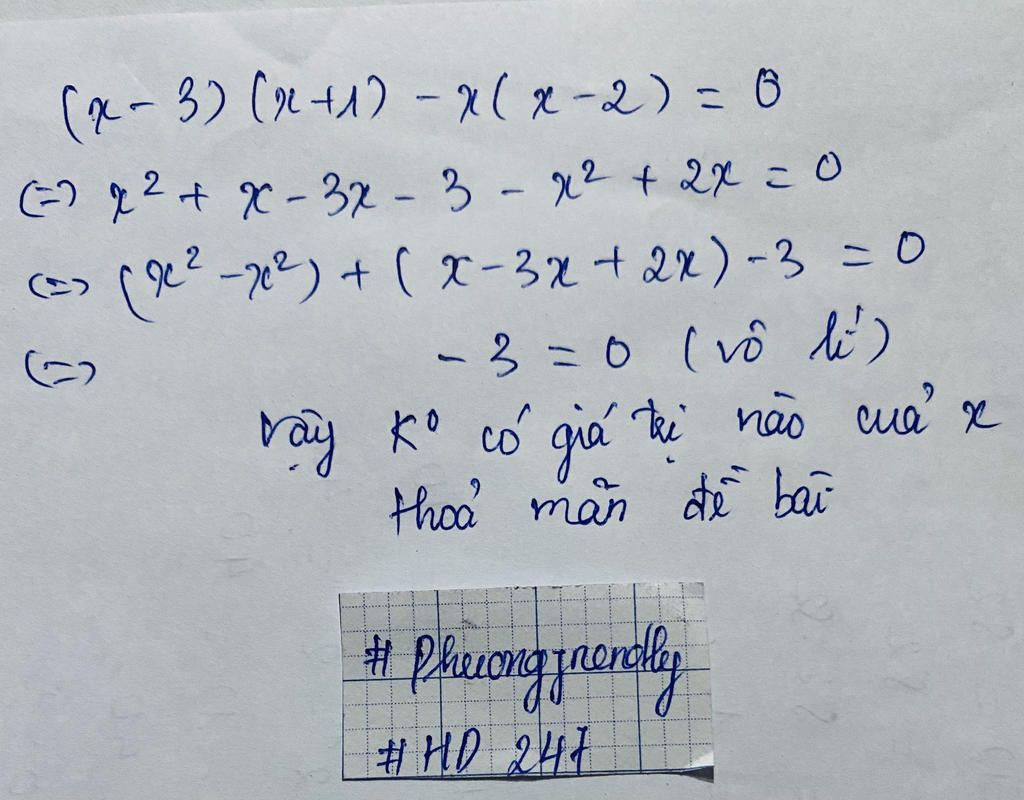 (x - 3) (x + 1) - x ( x - 2) = 0
(=) x² + x - 3x - 3 - x² + 2x = 0
(=) (x² - x²) + ( x - 3x + 2x) - 3 = 0
(=) - 3 = 0 ( vô lí )
vậy K⁰ có giá trị nào cuả x
thoả mãn đề bài
# Phuongfriendly
# HD 247